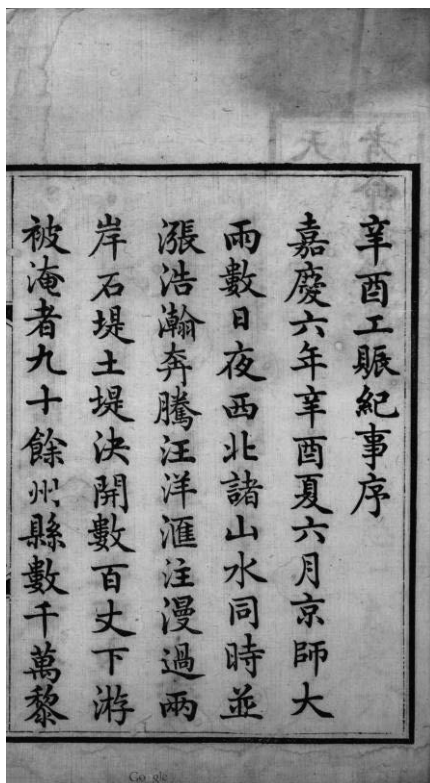 辛酉工賑紀事序
嘉慶六年辛酉夏六月京師大
雨數日夜西北諸山水同時並
漲浩瀚奔騰汪洋滙注漫過兩
岸石堤土堤決開數百丈下游
被淹者九十餘州縣數千萬黎
Google